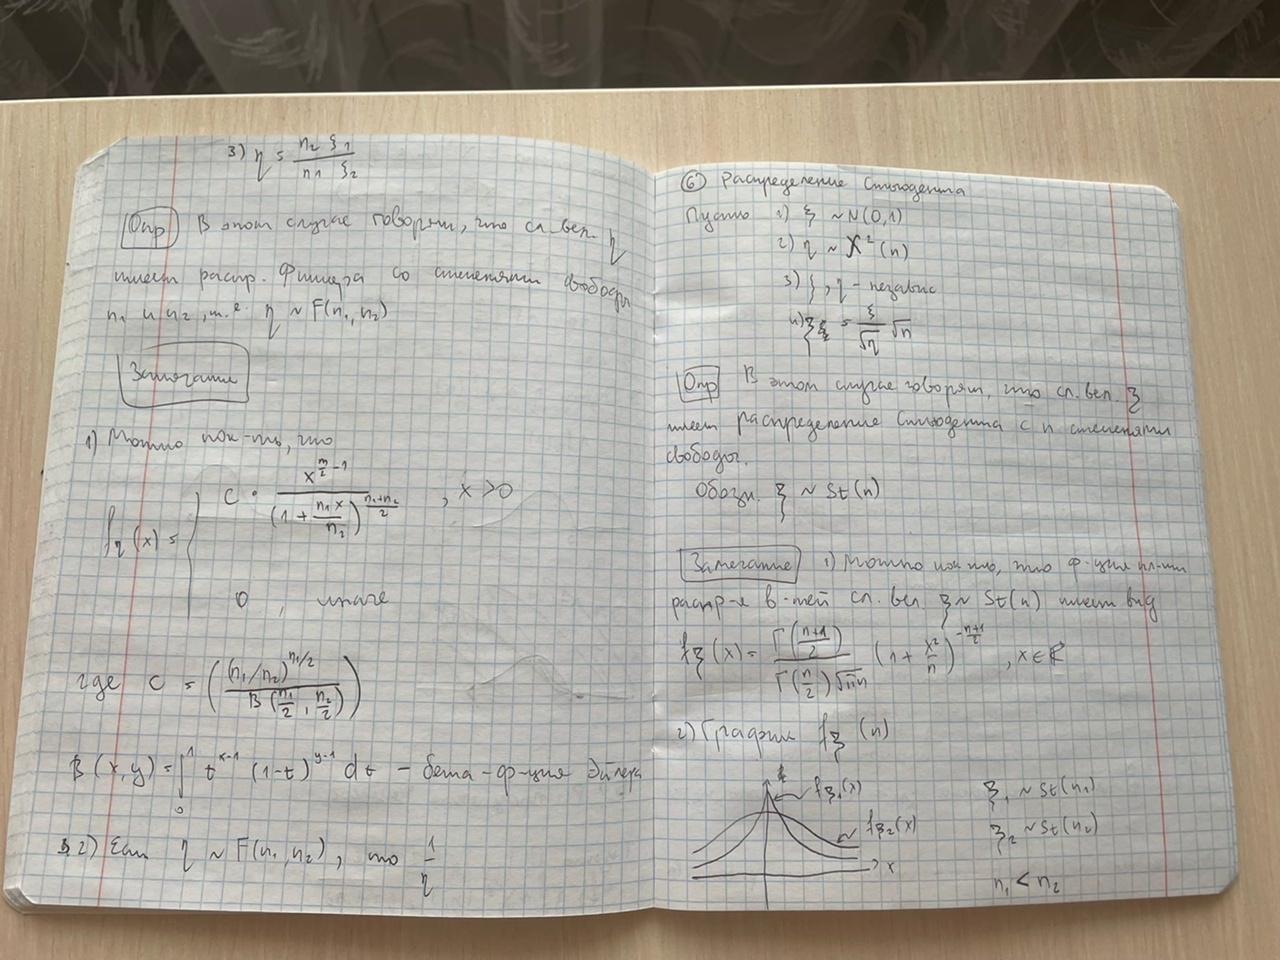 3) η = n₂ ξ₁ / n₁ ξ₂
Опр В этом случае говорят, что сл. вел. η
имеет распр. Фишера со степенями свободы
n₁ и n₂, т.е. η ~ F(n₁, n₂)
Замечание
1) Можно пок-ть, что
f_η(x) = { C · x^(n/2 - 1) / (1 + n₁x/n₂)^((n₁+n₂)/2) , x > 0
0 , иначе
где C = ((n₁/n₂)^(n₁/2) / B(n₁/2, n₂/2))
B(x,y) = ∫₀¹ t^(x-1) (1-t)^(y-1) dt – бета-ф-ция Эйлера
2) Если η ~ F(n₁, n₂), то 1/η
⑥ Распределение Стьюдента
Пусть 1) ξ ~ N(0,1)
2) η ~ X²(n)
3) ξ, η – независ
4) ζ = ξ/√η √n
Опр В этом случае говорят, что сл. вел. ζ
имеет распределение Стьюдента с n степенями
свободы.
Обозн. ζ ~ St(n)
Замечание 1) Можно пок-ть, что ф-ция пл-ти
распр-я в-тей сл. вел. ζ ~ St(n) имеет вид
f_ζ(x) = Γ((n+1)/2) / Γ(n/2)√πn (1 + x²/n)^(-(n+1)/2) , x ∈ R
2) График f_ζ (n)
f_ζ₁(x)
f_ζ₂(x)
x
ζ₁ ~ St(n₁)
ζ₂ ~ St(n₂)
n₁ < n₂